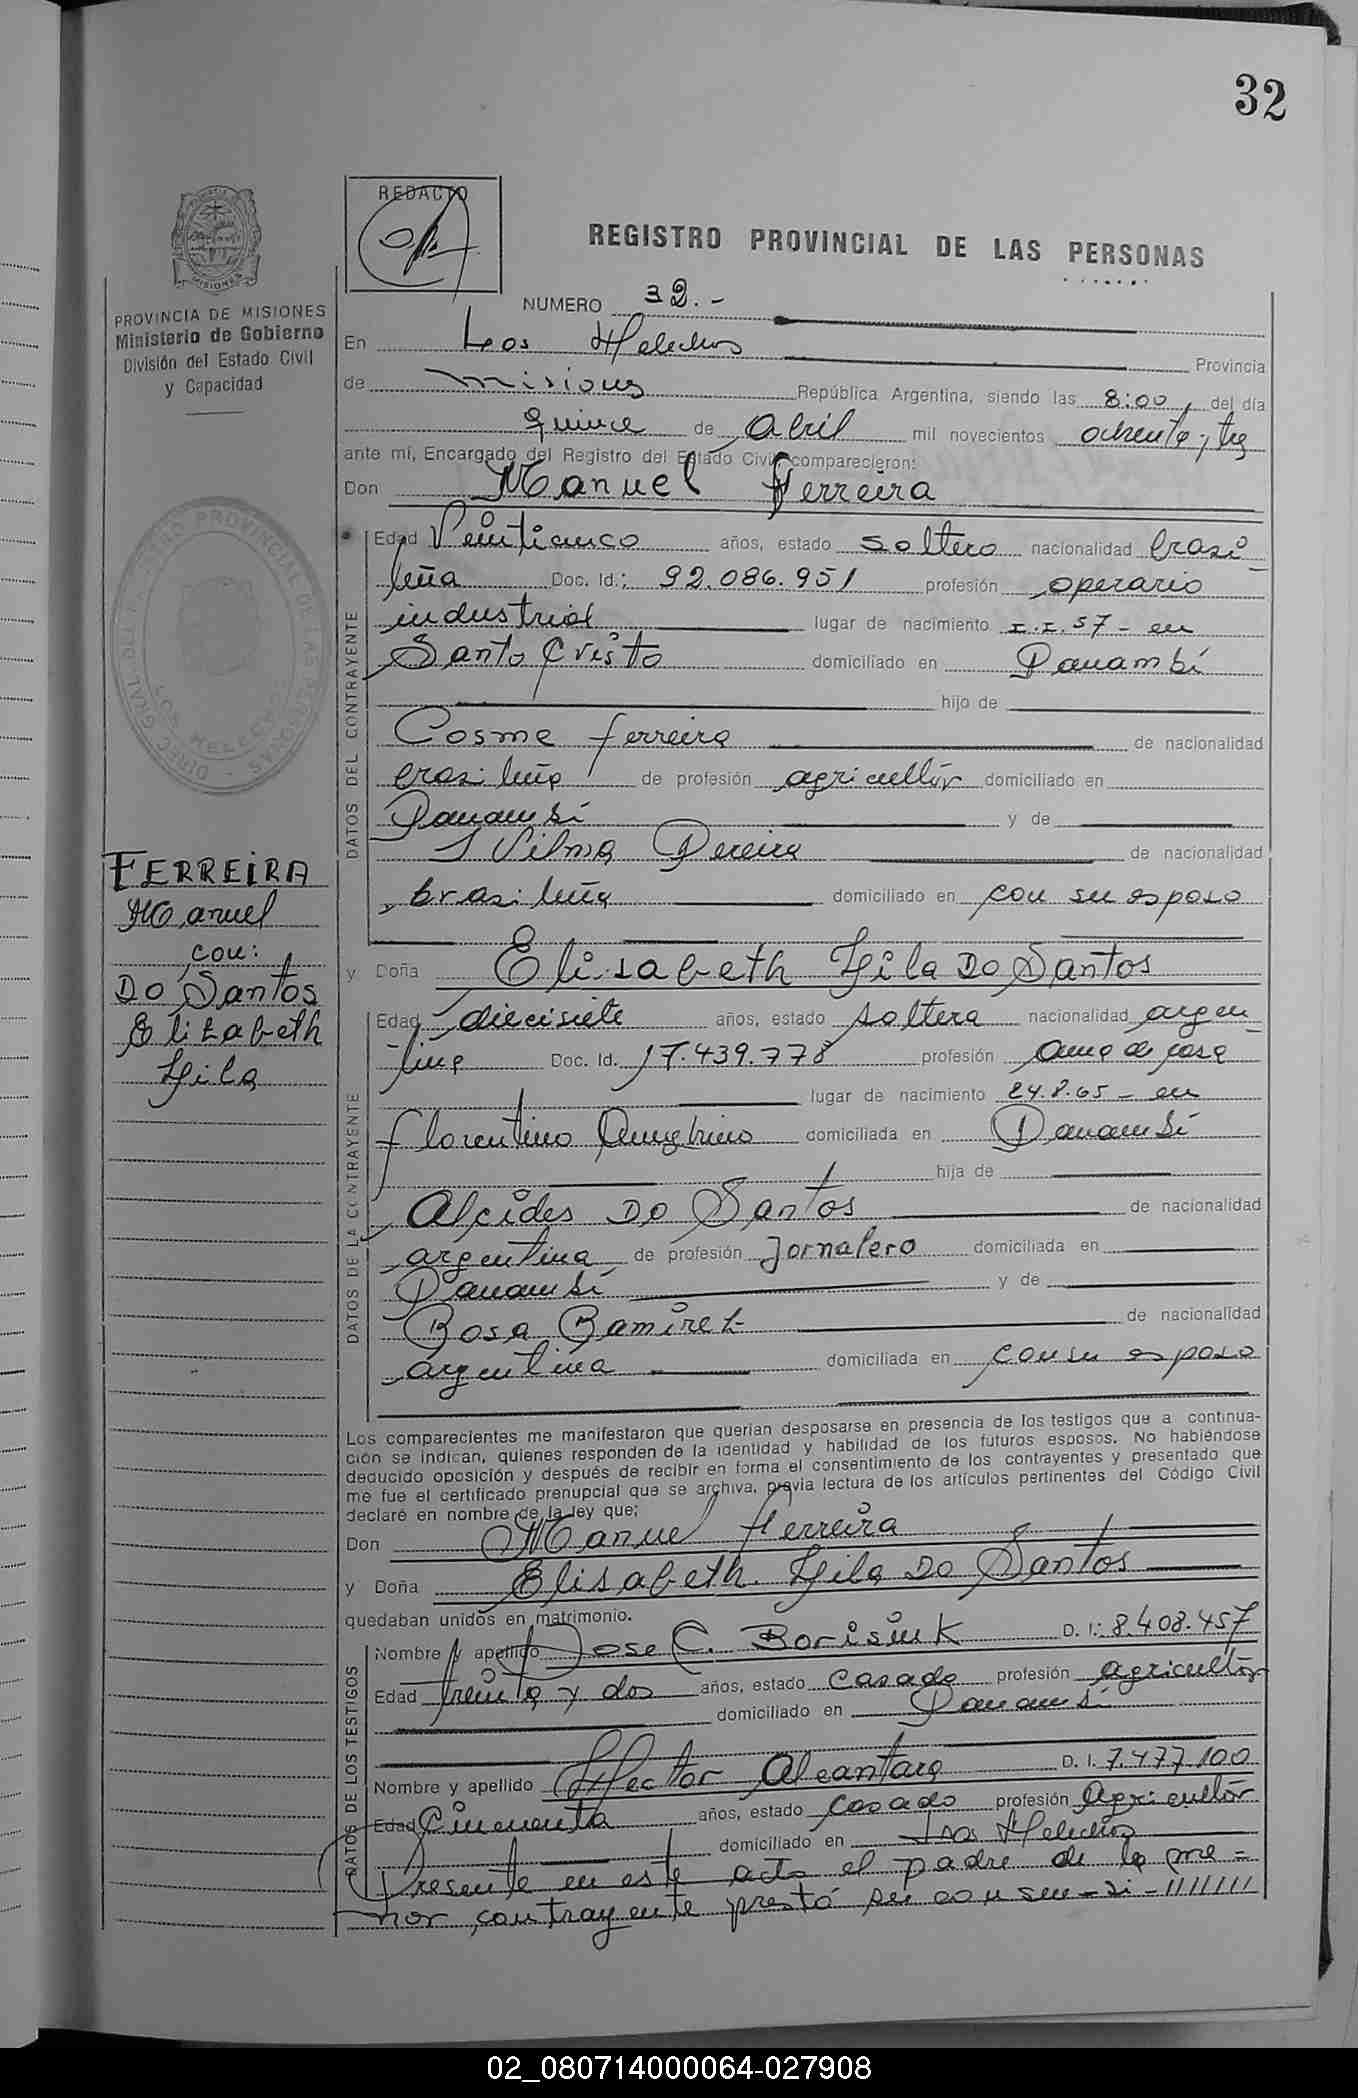 32
REDACTO
REGISTRO PROVINCIAL DE LAS PERSONAS
PROVINCIA DE MISIONES
Ministerio de Gobierno
División del Estado Civil
y Capacidad
NUMERO 32.-
En Los Helechos Provincia
de Misiones República Argentina, siendo las 8:00, del día
quince de Abril mil novecientos ochenta y tres
ante mí, Encargado del Registro del Estado Civil, comparecieron:
Don Manuel Ferreira
DATOS DEL CONTRAYENTE
Edad Veinticinco años, estado soltero nacionalidad brasi-
leña Doc. Id.: 92.086.951 profesión operario
industrial lugar de nacimiento I.I.57- en
Santo Cristo domiciliado en Panambí
hijo de
Cosme Ferreira de nacionalidad
brasileña de profesión agricultor domiciliado en
Panambí y de
Vilma Pereira de nacionalidad
brasileña domiciliado en con su esposo
FERREIRA
Manuel
con:
DO Santos
Elizabeth
Hila
y Doña Elisabeth Hila DO Santos
DATOS DE LA CONTRAYENTE
Edad diecisiete años, estado soltera nacionalidad argen-
tina Doc. Id. 17.439.778 profesión ama de casa
lugar de nacimiento 24.8.65- en
Florentino Ameghino domiciliada en Panambí
hija de
Alcides DO Santos de nacionalidad
argentina de profesión Jornalero domiciliada en
Panambí y de
Rosa Ramirez de nacionalidad
argentina domiciliada en con su esposo
Los comparecientes me manifestaron que querían desposarse en presencia de los testigos que a continua-
ción se indican, quienes responden de la identidad y habilidad de los futuros esposos. No habiéndose
deducido oposición y después de recibir en forma el consentimiento de los contrayentes y presentado que
me fue el certificado prenupcial que se archiva, previa lectura de los artículos pertinentes del Código Civil
declaré en nombre de la ley que;
Don Manuel Ferreira
y Doña Elisabeth Hila DO Santos
quedaban unidos en matrimonio.
DATOS DE LOS TESTIGOS
Nombre y apellido Jose C. Borisiuk D. I.: 8.408.457
Edad treinta y dos años, estado casado profesión agricultor
domiciliado en Panambí
Nombre y apellido Hector Alcantara D. I. 7.477.100
Edad Cincuenta años, estado casado profesión Agricultor
domiciliado en Los Helechos
Presente en este acto el padre de la me=
nor contrayente prestó su consen-
02_080714000064-027908